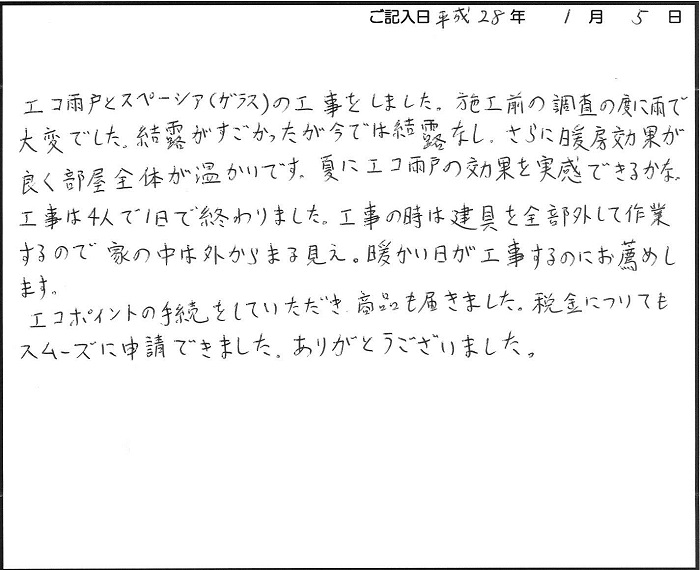 ご記入日 平成28年 1月 5日
エコ雨戸とスペーシア(ガラス)の工事をしました。施工前の調査の度に雨で
大変でした。結露がすごかったが今では結露なし。さらに暖房効果が
良く部屋全体が温かいです。夏にエコ雨戸の効果を実感できるかな。
工事は4人で1日で終わりました。工事の時は建具を全部外して作業
するので家の中は外からまる見え。暖かい日が工事するのにお薦めし
ます。
エコポイントの手続をしていただき商品も届きました。税金についても
スムーズに申請できました。ありがとうございました。